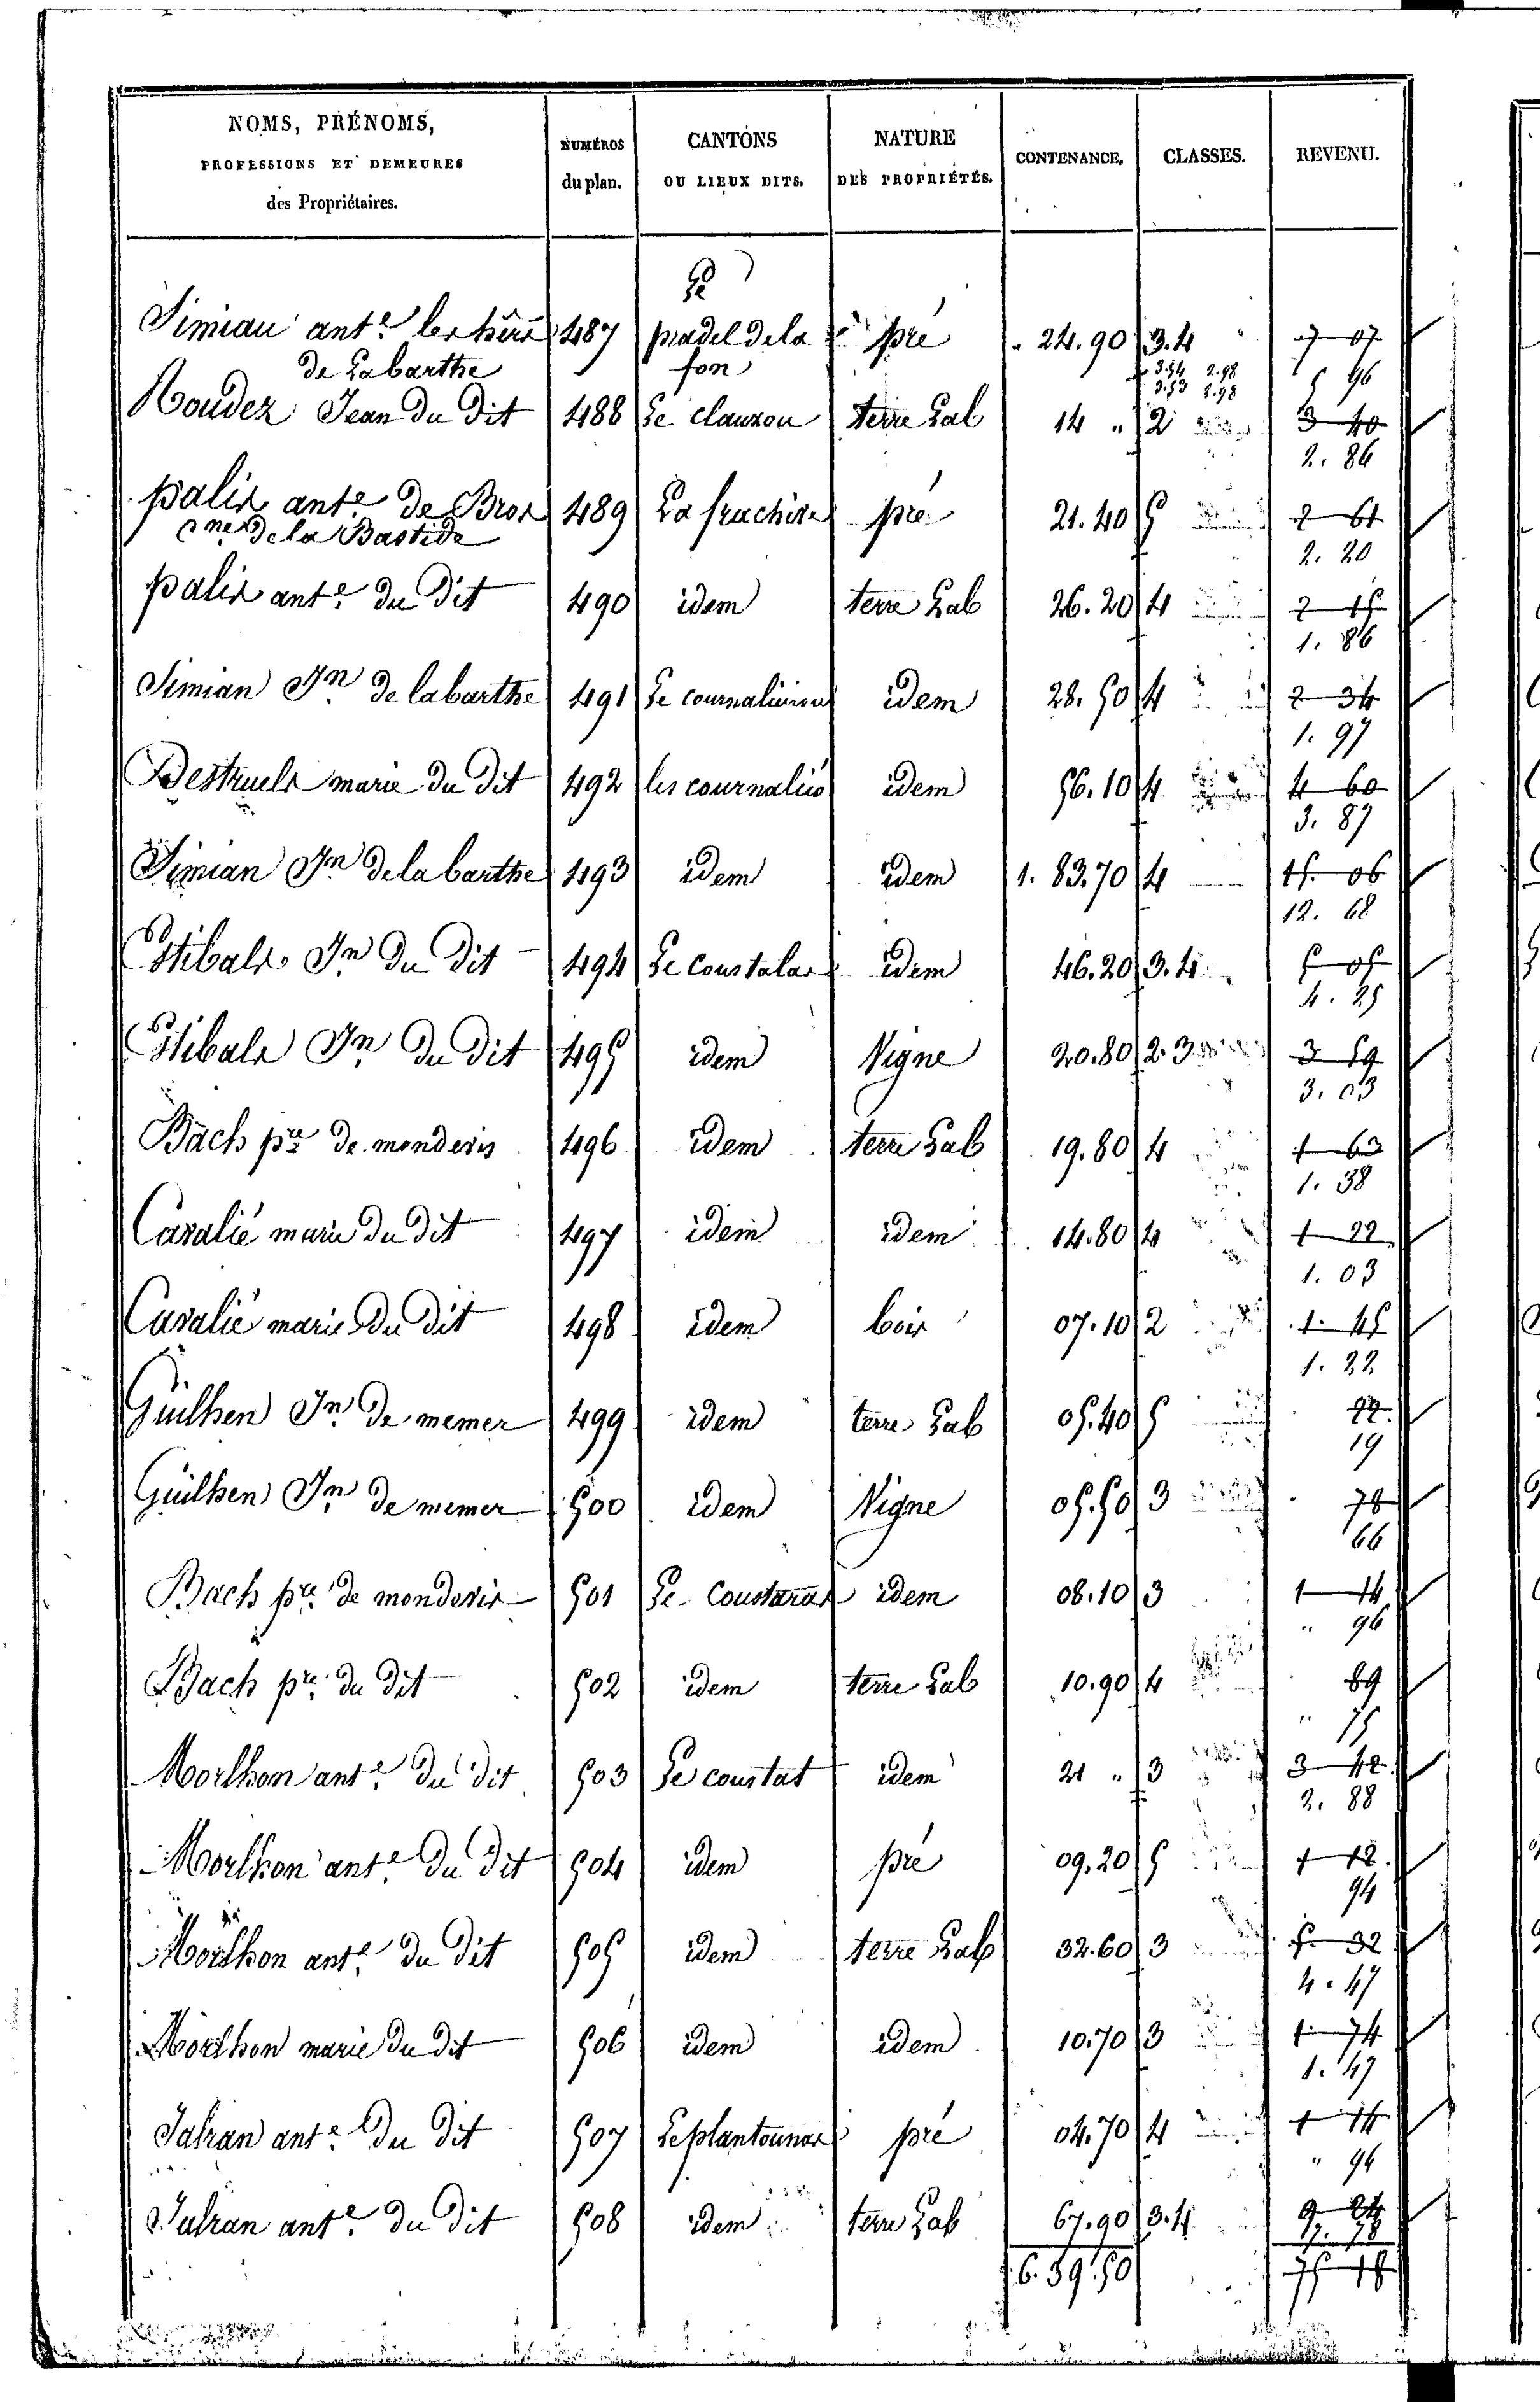 NOMS, PRÉNOMS, PROFESSIONS ET DEMEURES des Propriétaires. | NUMÉROS du plan. | CANTONS OU LIEUX DITS. | NATURE DES PROPRIÉTÉS. | CONTENANCE. | CLASSES. | REVENU.
Simian ant.e les hérs 487 Le pradel de la fon pré 24.90 3.4 7 07
de Labarthe 3.54 2.98 5 96
2.53 2.98
Roudez Jean du dit 488 Le clauzou terre Lab 14 " 2 3 40
2. 86
palis ant.e de Bros 489 La fruchire pré 21.40 5 2 61
Cne de la Bastide 2. 20
palis ant.e du dit 490 idem terre Lab 26.20 4 2 15
1. 86
Simian Jn de labarthe 491 Le idem 28.50 4 2 34
1. 97
Destruels marie du dit 492 les cournaliés idem 56.10 4 4 60
3. 87
Simian Jn de labarthe 493 idem idem 1. 83.70 4 15. 06
12. 68
Estibals Jn du dit 494 Le coustalas idem 46.20 3.4 5 05
4. 25
Estibals Jn du dit 495 idem Vigne 20.80 2.3 3 59
3. 03
Bach pre de monderis 496 idem terre Lab 19.80 4 1 63
1. 38
Cavalié marie du dit 497 idem idem 14.80 4 1 22
1. 03
Cavalié marie du dit 498 idem bois 07.10 2 1. 45
1. 22
Guilhen Jn de memer 499 idem terre Lab 05.40 5 22
19
Guilhen Jn de memer 500 idem Vigne 05.50 3 78
66
Bach pre de monderis 501 Le Coustaras idem 08.10 3 1 14
" 96
Bach pre du dit 502 idem terre Lab 10.90 4 89
" 75
Morlhon ant.e du dit 503 Le coustat idem 21 " 3 3 42
2. 88
Morlhon ant.e du dit 504 idem pré 09.20 5 1 12
94
Morlhon ant.e du dit 505 idem terre Lab 32.60 3 5. 32
4. 47
Morlhon marie du dit 506 idem idem 10.70 3 1 74
1. 47
Jalran ant.e du dit 507 Le plantounas pré 04.70 4 1 14
" 96
Jalran ant.e du dit 508 idem terre Lab 67.90 3.4 9 24
7. 78
6. 39.50 75 18